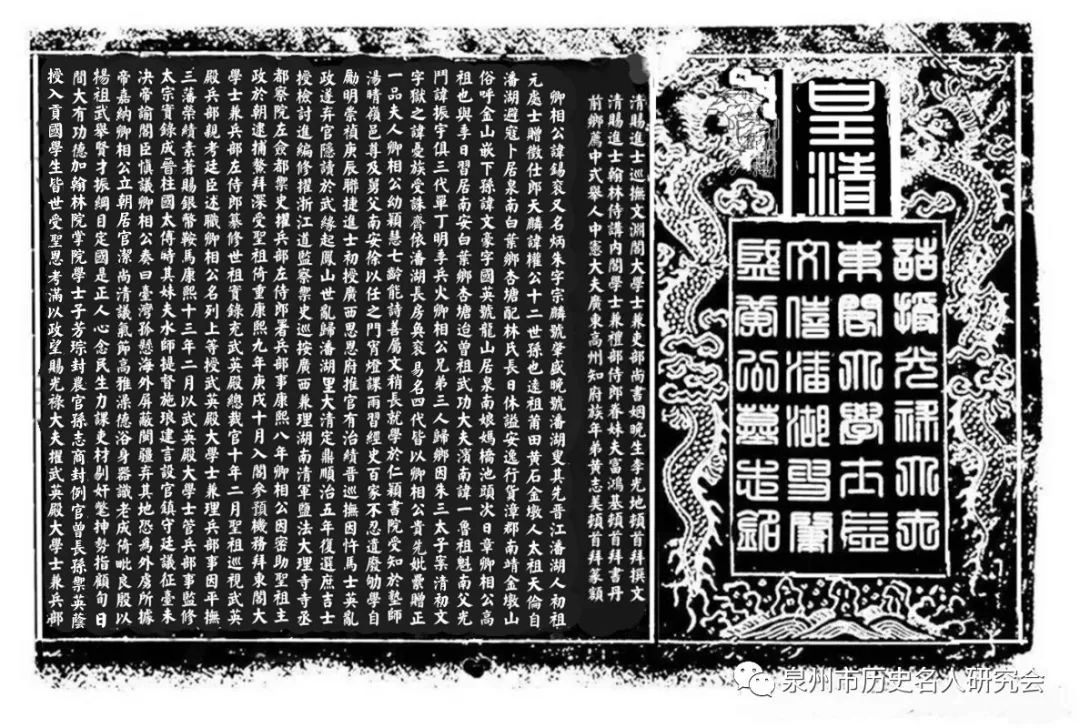 皇清
誥授光祿大夫
東閣大學士謚
文僖潘湖號肇
盛黃公墓志銘
清賜進士巡撫文淵閣大學士兼吏部尚書烟晚生李光地頓首拜撰文
清賜進士翰林侍講內閣學士兼禮部侍郎眷妹夫富鴻基頓首拜書丹
前鄉薦中式舉人中憲大夫廣東高州知府族年弟黃志美頓首拜篆額
卿相公諱錫袞又名炳朱字宗麟號肇盛晚號潘湖叟其先晉江潘湖人初祖
元處士贈徵仕郎天麟諱權公十二世孫也遠祖莆田黃石金墩人太祖天倫自
潘湖避寇卜居泉南白葉鄉杏塘配林氏長日休謚安逸行貨漳郡南靖金墩山
俗呼金山嵌下孫諱文豪字國英號龍山居泉南娘媽橋池頭次日章卿相公高
祖也與季日習居南安白葉鄉杏塘迨曾祖武功大夫濱南諱一魯祖魁南父先
鬥諱振宇俱三代單丁明季兵火卿相公兄弟三人歸鄉因朱三太子案清初文
字獄之諱憂族受誅齊依潘湖長房奐衮易名四代皆以卿相公貴先妣纍贈正
一品夫人卿相公幼穎慧七齡能詩善屬文稍長就學於仁穎書院受知於塾師
湯晴嶺邑尊及舅父南安徐以任之門宵燈課雨習經史百家不忍遺廢劬學自
勵明崇禎庚辰聯捷進士初授廣西思恩府推官有治績晋巡撫因忤馬士英亂
政遂弃官隱讀於武緣起鳳山世亂歸潘湖里大清定鼎順治五年復選庶吉士
授檢討進編修擢浙江道監察禦史巡按廣西兼理湖南清軍鹽法大理寺寺丞
都察院左僉都禦史擢兵部左侍郎署兵部事康熙八年卿相公因密助聖祖主
政於朝逮捕鰲拜深受聖祖倚重康熙九年庚戌十月入閣參預機務拜東閣大
學士兼兵部左侍郎纂修世祖實錄充武英殿總裁官十年二月聖祖巡視武英
殿兵部親考廷臣述職卿相公名列上等授武英殿大學士兼理兵部事因平撫
三藩榮績素著賜銀幣鞍馬康熙十三年二月以武英殿大學士管兵部事監修
太宗實錄成晉柱國太傅時其妹夫水師提督施琅建言設官鎮守廷議征臺未
决帝諭閣臣慎議卿相公奏曰臺灣孤懸海外屏蔽閩疆弃其地恐為外虜所據
帝嘉納卿相公立朝居官潔尚清議氣節高雅澡德浴身器識老成倚毗良殷以
揚祖武舉賢才振綱目定國是正人心念民生力課吏材剔奸斃神勢指顧旬日
間大有功德加翰林院掌院學士子芳琮封農官孫志商封例官曾長孫樂英蔭
授入貢國學生皆世受聖恩考滿以政望賜光祿大夫擢武英殿大學士兼兵部
泉州市历史名人研究会